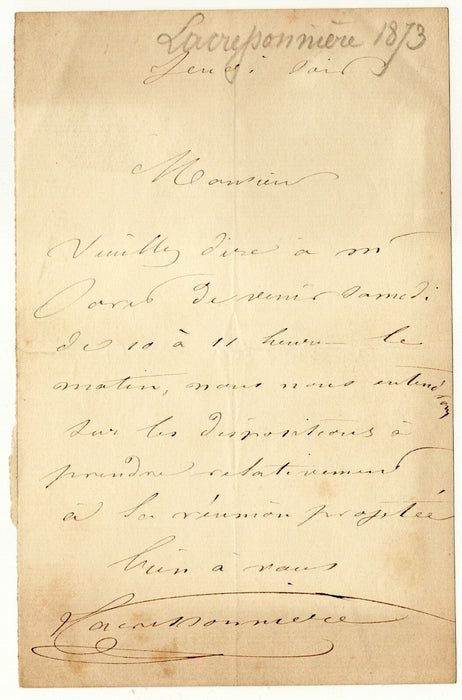 Lacressonnière 1873
Jeudi soir
Monsieur
Veuillez dire à mr
de venir samedi
de 10 à 11 heures le
matin, nous nous entendrons
sur les dispositions à
prendre relativement
à la réunion projetée
bien à vous
Lacressonnière